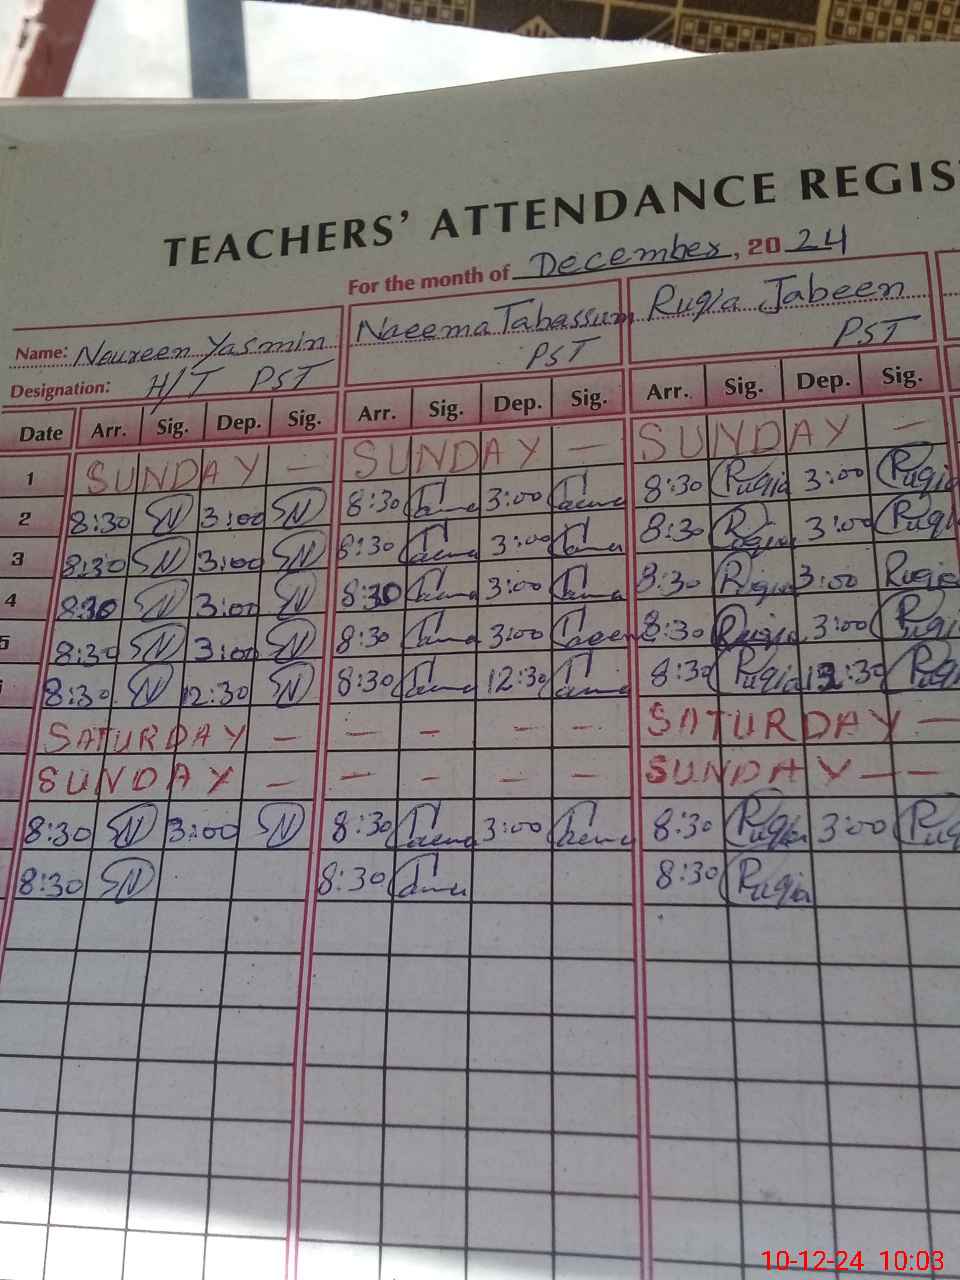 TEACHERS' ATTENDANCE REGIS
For the month of December, 2024
Name: Noureen Yasmin Naeema Tabassum Ruqia Jabeen
Designation: H/T PST PST PST
Date Arr. Sig. Dep. Sig. Arr. Sig. Dep. Sig. Arr. Sig. Dep. Sig.
1 SUNDAY — SUNDAY — SUNDAY —
2 8:30 SN 3:00 SN 8:30 3:00 8:30 Ruqia 3:00 Ruqia
3 8:30 SN 3:00 SN 8:30 3:00 8:30 Ruqia 3:00 Ruqi
4 8:30 SN 3:00 SN 8:30 3:00 8:30 Ruqia 3:00 Ruqia
5 8:30 SN 3:00 SN 8:30 3:00 8:30 Ruqia 3:00 Ruqi
8:30 SN 12:30 SN 8:30 12:30 8:30 Ruqia 12:30 Ruqi
SATURDAY — — — — — SATURDAY —
SUNDAY — — — — — SUNDAY — —
8:30 SN 3:00 SN 8:30 3:00 8:30 Ruqia 3:00 Ruq
8:30 SN 8:30 8:30 Ruqia
10-12-24 10:03